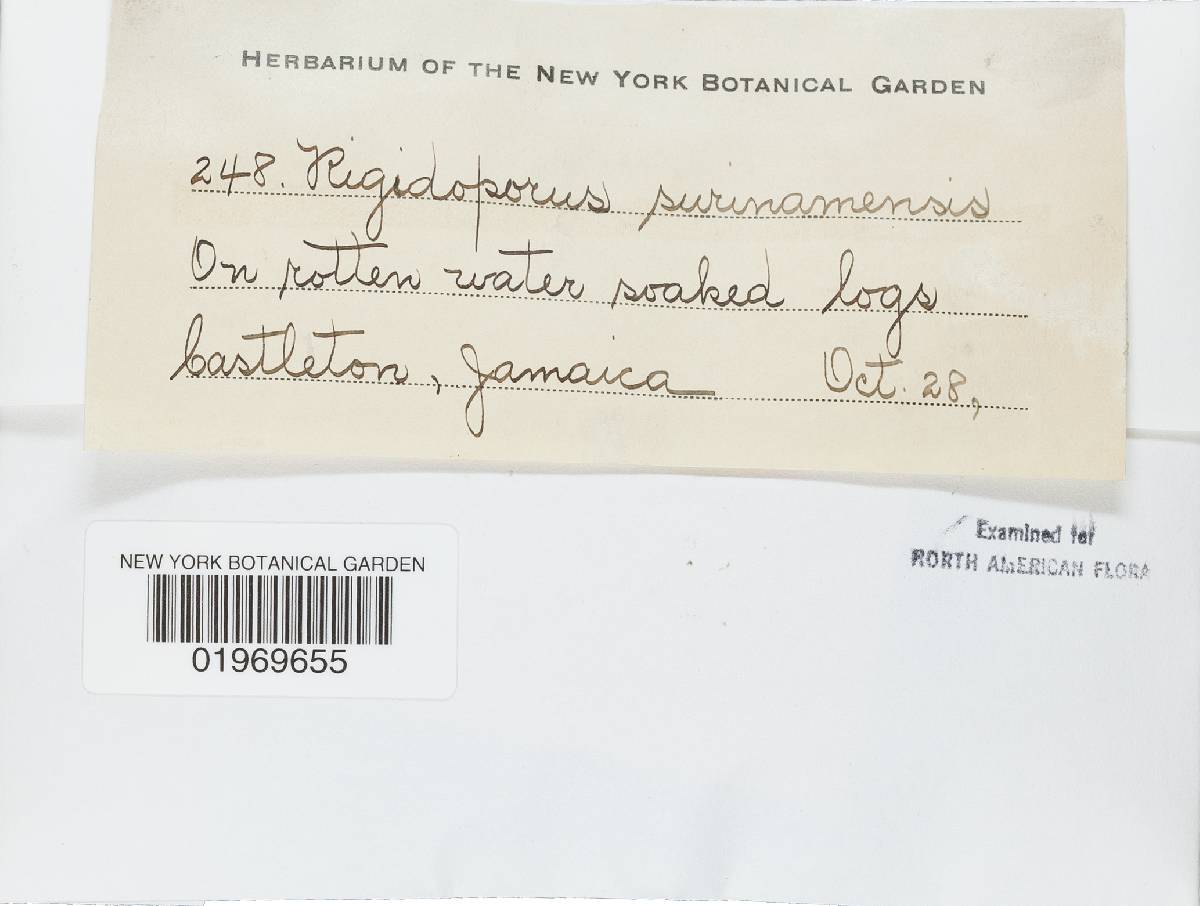 HERBARIUM OF THE NEW YORK BOTANICAL GARDEN
248. Rigidoporus surinamensis
On rotten water soaked logs
Castleton, Jamaica Oct. 28,
Examined for
NORTH AMERICAN FLORA
NEW YORK BOTANICAL GARDEN
01969655